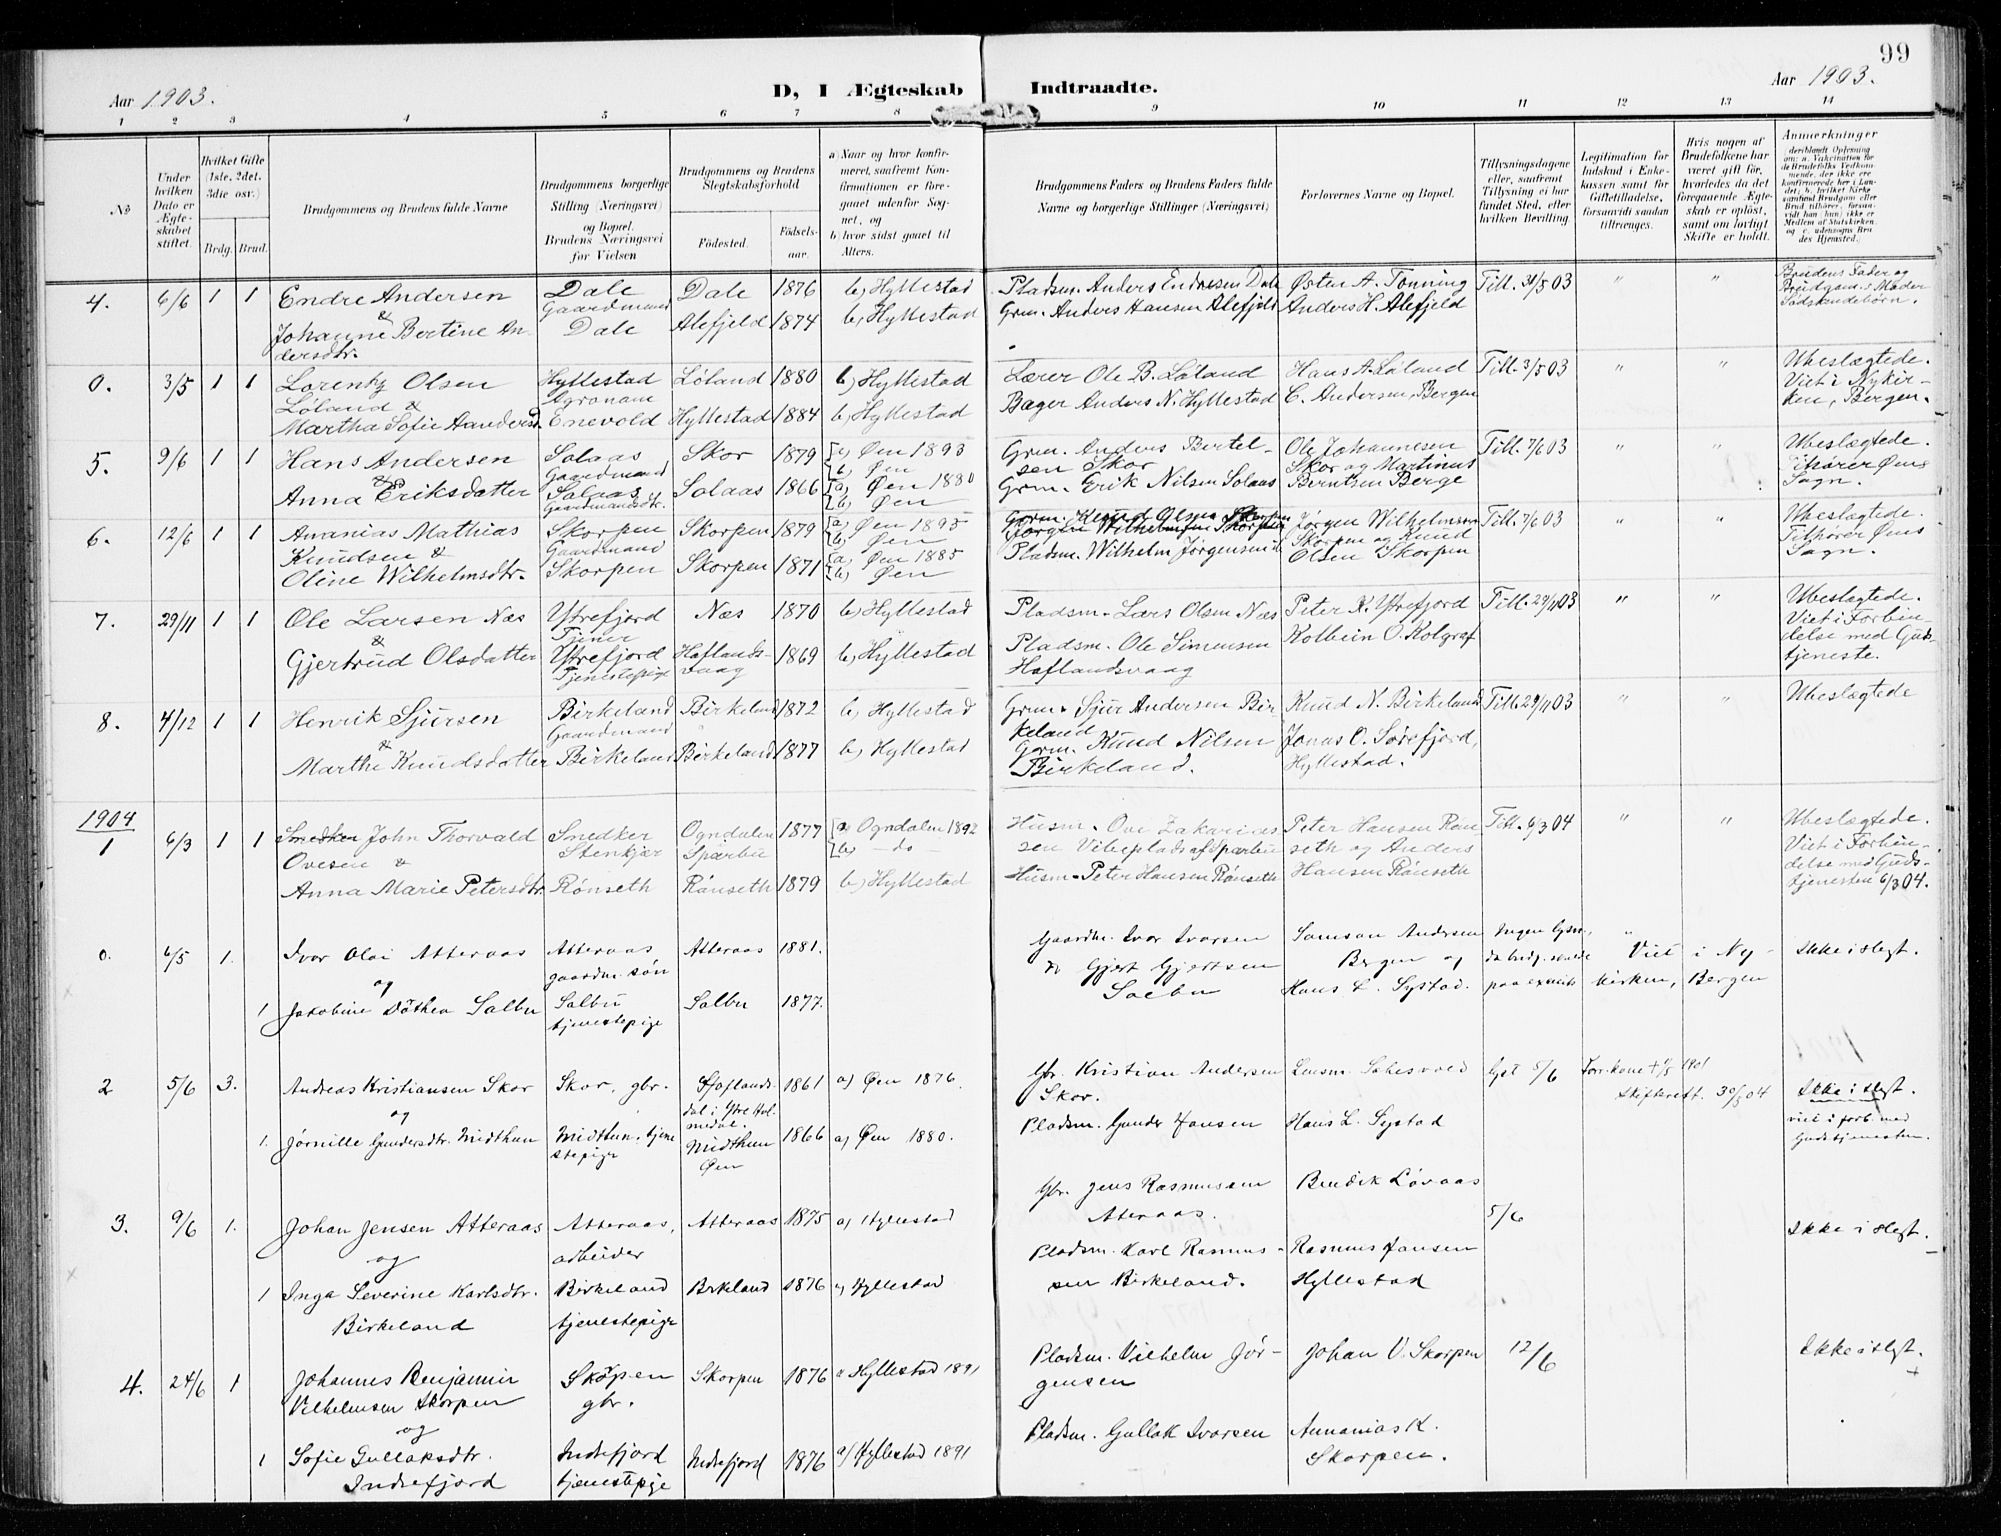 99
Aar 1903.
D, I Ægteskab Indtraadte.
Aar 1903.
1 2 3 4 5 6 7 8 9 10 11 12 13 14
No
Under hvilken Dato er Ægteskabet stiftet.
Hvilket Gifte (1ste, 2det, 3die osv.)
Brdg. Brud.
Brudgommens og Brudens fulde Navne
Brudgommens borgerlige Stilling (Næringsvei) og Bopæl. Brudens Næringsvei før Vielsen
Brudgommens og Brudens Slegtskabsforhold
Fødested.
Fødselsaar.
a) Naar og hvor konfirmeret, saafremt Konfirmationen er foregaaet udenfor Sognet, og
b) hvor sidst gaaet til Alters.
Brudgommens Faders og Brudens Faders fulde Navne og borgerlige Stillinger (Næringsvei)
Forlovernes Navne og Bopæl.
Tillysningsdagene eller, saafremt Tillysning ei har fundet Sted, efter hvilken Bevilling
Legitimation for Indskud i Enkekassen samt for Giftetilladelse, forsaavidt saadan tiltrænges.
Hvis nogen af Brudefolkene har været gift før, hvorledes da det foregaaende Ægteskab er opløst, samt om lovligt Skifte er holdt.
Anmerkninger
4. 6/6 1 1 Endre Andersen Dale Gaardmand Dale 1876 b) Hyllestad Pladsm. Anders Endresen Dale Østen A. Tonning Till. 31/5 03 " " Brudens Fader og Brudgom.s Moder Sødskendebørn.
& Johanne Bertine Andersdtr. Dale Alefjeld 1874 b) Hyllestad Grm. Anders Hansen Alefjeld Anders H. Alefjeld
0. 3/5 1 1 Lorentz Olsen Løland & Hyllestad Agronom Løland 1880 b) Hyllestad Lærer Ole B. Løland Hans A. Løland Till. 3/5 03 " " Ubeslægtede. Viet i Nykirken, Bergen.
Martha Sofie Andersd. Enevold Hyllestad 1884 b) Hyllestad Bager Anders N. Hyllestad C. Andersen, Bergen
5. 9/6 1 1 Hans Andersen Solaas Gaardmand Skor 1879 a) Øen 1893 b) Øen Grm. Anders Bertelsen Skor Ole Johannesen Skor og Martinus Till. 7/6 03 " " Ubeslægtede. Tilhører Øens Sogn.
& Anna Eriksdatter Solaas Gaardmandsdtr. Solaas 1866 a) Øen 1880 b) Øen Grm. Erik Nilsen Solaas Berntsen Berge
6. 12/6 1 1 Ananias Mathias Knudsen & Skorpen Gaardmand Skorpen 1879 a) Øen 1895 b) Øen Grm. Knud Olsen Skorpen Jørgen Wilhelmsen Skorpen Jørgen Wilhelmsen Skorpen og Knud Till. 7/6 03 " " Ubeslægtede. Tilhører Øens Sogn.
Oline Wilhelmsdtr. Skorpen Skorpen 1871 a) Øen 1885 b) Øen Pladsm. Wilhelm Jørgensen Olsen Skorpen
7. 29/11 1 1 Ole Larsen Næs Ytrefjord Tjener Næs 1870 b) Hyllestad Pladsm. Lars Olsen Næs Peter K. Ytrefjord Till. 29/11 03 " " Ubeslægtede. Viet i Forbindelse med Gudstjeneste.
& Gjertrud Olsdatter Ytrefjord Tjenestepige Haflandsvaag 1869 b) Hyllestad Pladsm. Ole Simonsen Haflandsvaag Kolbein O. Kolgraf
8. 4/12 1 1 Henrik Sjursen Birkeland Gaardmand Birkeland 1872 b) Hyllestad Grm. Sjur Andersen Birkeland Knud N. Birkeland Till. 29/11 03 " " Ubeslægtede
& Marthe Knudsdatter Birkeland Birkeland 1877 b) Hyllestad Grm. Knud Nilsen Birkeland. Jonas O. Sørefjord, Hyllestad.
1904
1 6/3 1 1 Smedker John Thorvald Ovesen & Snedker Stenkjær Ogndalen Sparbu 1877 a) Ogndalen 1892 b) do Husm. Ove Zakariassen Vibeplads af Sparbu Peter Hansen Rønseth og Anders Till. 6/3 04 " " Ubeslægtede. Viet i Forbindelse med Gudstjenesten 6/3 04.
Anna Marie Petersdtr. Rønseth Rønseth 1879 b) Hyllestad Husm. Peter Hansen Rønseth Hansen Rønseth
0. 6/5 1. Ivar Olai Atteraas Atteraas gaardm. søn Atteraas 1881. Gaardm. Ivar Ivarsen Samson Andersen Bergen og Ingen " Viet i Nykirken, Bergen Ikke i slegt.
og 1. Jakobine Dothea Salbu Salbu tjenestepige Salbu 1877. do Gjert Gjertsen Salbu Hans L. Systad.
2 5/6 3. Andreas Kristiansen Skor Skor, gbr. Haflandsdal i Ytre Holmedal. 1861 a) Øen 1876. Gbr. Kristian Andersen Skor. Lensm. 5/6 Forr. kone + 1901 Skifterett. 30/5 04 Ikke i slegt. viet i forb. med Gudstjenesten.
og 1. Jørnille Gundersdtr. Midthun Midthun, tjenestepige Midthun Øen 1866 a) Øen 1880. Pladsm. Gunder Jansen Hans L. Systad
3. 9/6 1. Johan Jensen Atteraas Atteraas, arbeider Atteraas 1875 a) Hyllestad Gbr. Jens Rasmussen Ateraas. Bendik Løvaas 5/6 Ikke i slegt.
og 1 Inga Severine Karlsdtr. Birkeland Birkeland tjenestepige Birkeland 1876 a) Hyllestad Pladsm. Karl Rasmussen Birkeland. Rasmus Jansen Hyllestad
4. 24/6 1 Johannes Benjamin Vilhelmsen Skorpen Skorpen gbr. Skorpen 1876 a Hyllestad 1891 Pladsm. Vilhelm Jørgensen Johan V. Skorpen 12/6 Ikke i slegt.
og 1 Sofie Gullaksdtr. Indrefjord Indrefjord tjenestepige Indrefjord 1876 a) Hyllestad 1891 Pladsm. Gullak Ivarsen Annanias K. Skorpen.